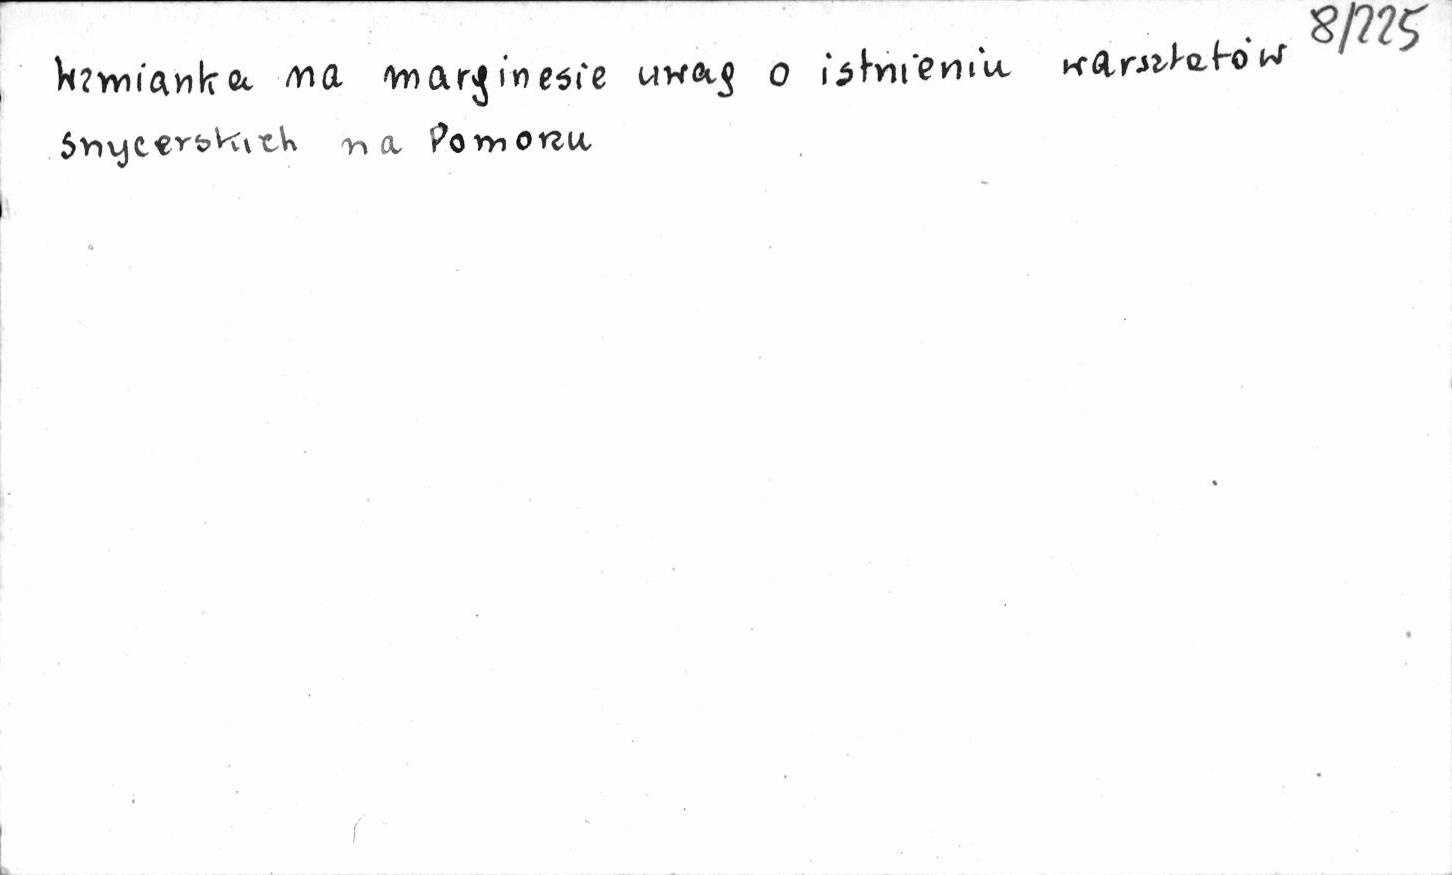 8/225
Wzmianka na marginesie uwag o istnieniu warsztatów
snycerskich na Pomorzu